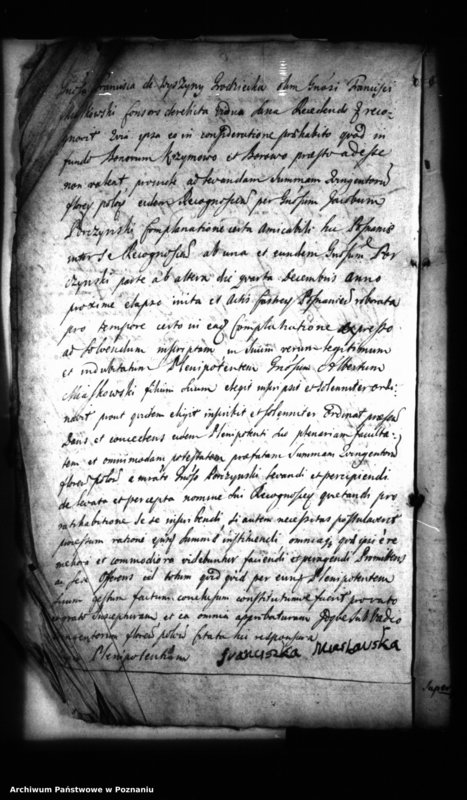 Gnosa Francisca de Wyszyny Grodziecka olim Gnosi Francisci
Miaskowski Consors derelicta Vidua sana Recedendo et reco-
gnovit Quia ipsa eo in consideratione prehabito quod in
fundo Bonorum Krzymowo et Borowo praesto adesse
non valeat, proinde ad levandam Summam Ducentorum
floren polon eidem Recognoscen per Gnosum Jacobum
Porczynski Complanatione certa amicabili hic Posnaniae
inter se Recognoscen ab una et eundem Gnosum Por
czynski parte ab altera die quarta Decembris anno
proxime elapso inita et Actis Castren Posnanien roborata
pro tempore certo in eaq Complanatione expresso
ad solvendum inscriptam in suum verum legitimum
et indubitatum Plenipotentem Gnosum Albertum
Miaskowski filium suum elegit inscripsit et solenniter ordi-
navit prout quidem eligit inscribit et solenniter ordinat praesen
Dans et concedens eidem Plenipotenti suo plenariam faculta-
tem et omnimodam potestatem praefatam Summam
floren polon a mrato Gnoso Porczynski levandi et percipiendi
de levata et percepta nomine sui Recognoscen quietandi pro
ratihabitione de se inscribendi si autem necessitas postulaverit
processum ratione ejusd summae instituendi omniaq quae ipsi e re
meliora et commodiora videbuntur faciendi et peragendi Promittens
ea se Offerens id totum quid quid per eund Plenipotentem
suum gestum factum conclusum constitutumve fuerit pro rato
grato suscepturam et ea omnia approbaturam sub Vadio
floren polon citata hic responsura
Plenipotentiam Franciszka Miaskowska
Super
Archiwum Państwowe w Poznaniu